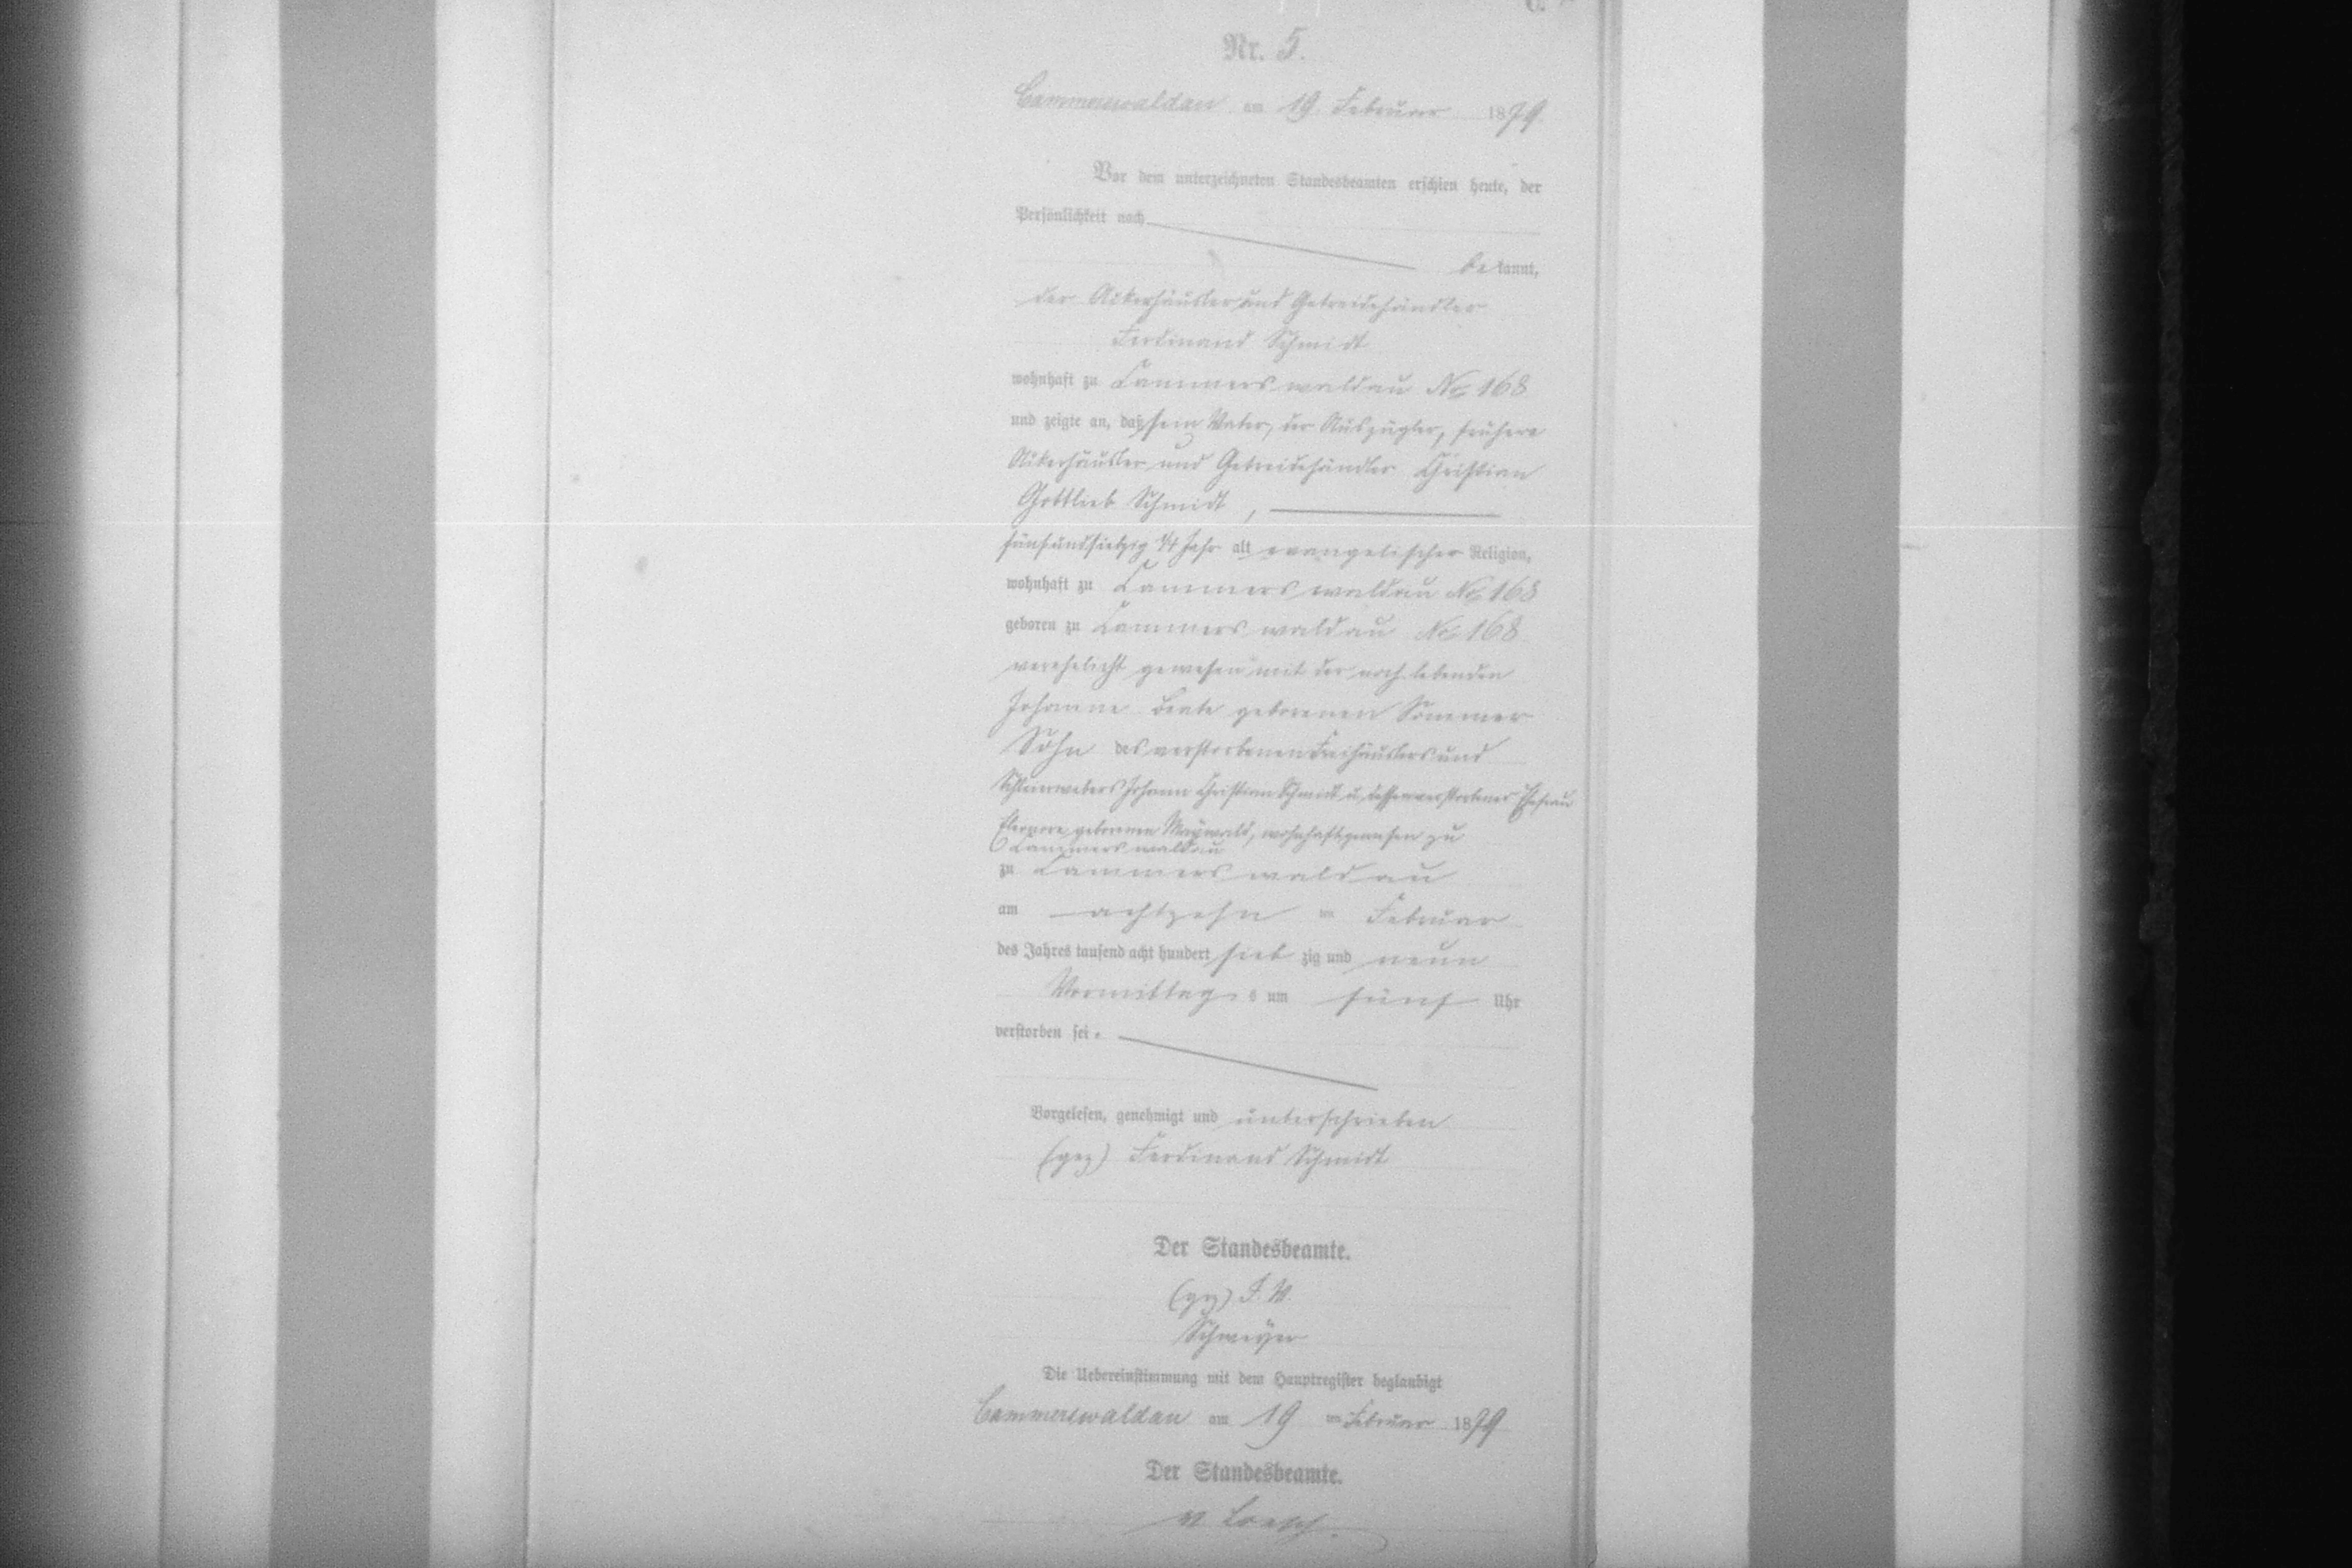 Nr. 5.
Cammerswaldau am 19. Februar 1879
Vor dem unterzeichneten Standesbeamten erschien heute, der
Persönlichkeit nach
bekannt,
der Ackerhäusler und Getreidehändler
Ferdinand Schmidt
wohnhaft zu Cammerswaldau No 168
und zeigte an, daß sein Vater, der Auszügler, frühere
Ackerhäusler und Getreidehändler Christian
Gottlieb Schmidt,
fünfundsiebzig 1/4 Jahr alt evangelischer Religion,
wohnhaft zu Cammerswaldau No 168
geboren zu Cammerswaldau No 168
verehelicht gewesen mit der noch lebenden
Johanne Beate geborenen Sommer
Sohn des verstorbenen Freihäuslers und
Schleierwebers Johann Christian Schmidt u. dessen verstorbener Ehefrau
Eleonore geborenen Maywald, wohnhaft gewesen zu
Cammerswaldau
zu Cammerswaldau
am achtzehn ten Februar
des Jahres tausend acht hundert siebzig und neun
Vormittags um fünf Uhr
verstorben sei.
Vorgelesen, genehmigt und unterschrieben
(gez) Ferdinand Schmidt
Der Standesbeamte.
(gez) I. V.
Die Uebereinstimmung mit dem Hauptregister beglaubigt
Cammerswaldau am 19 ten Februar 1879
Der Standesbeamte.
v Loesch.